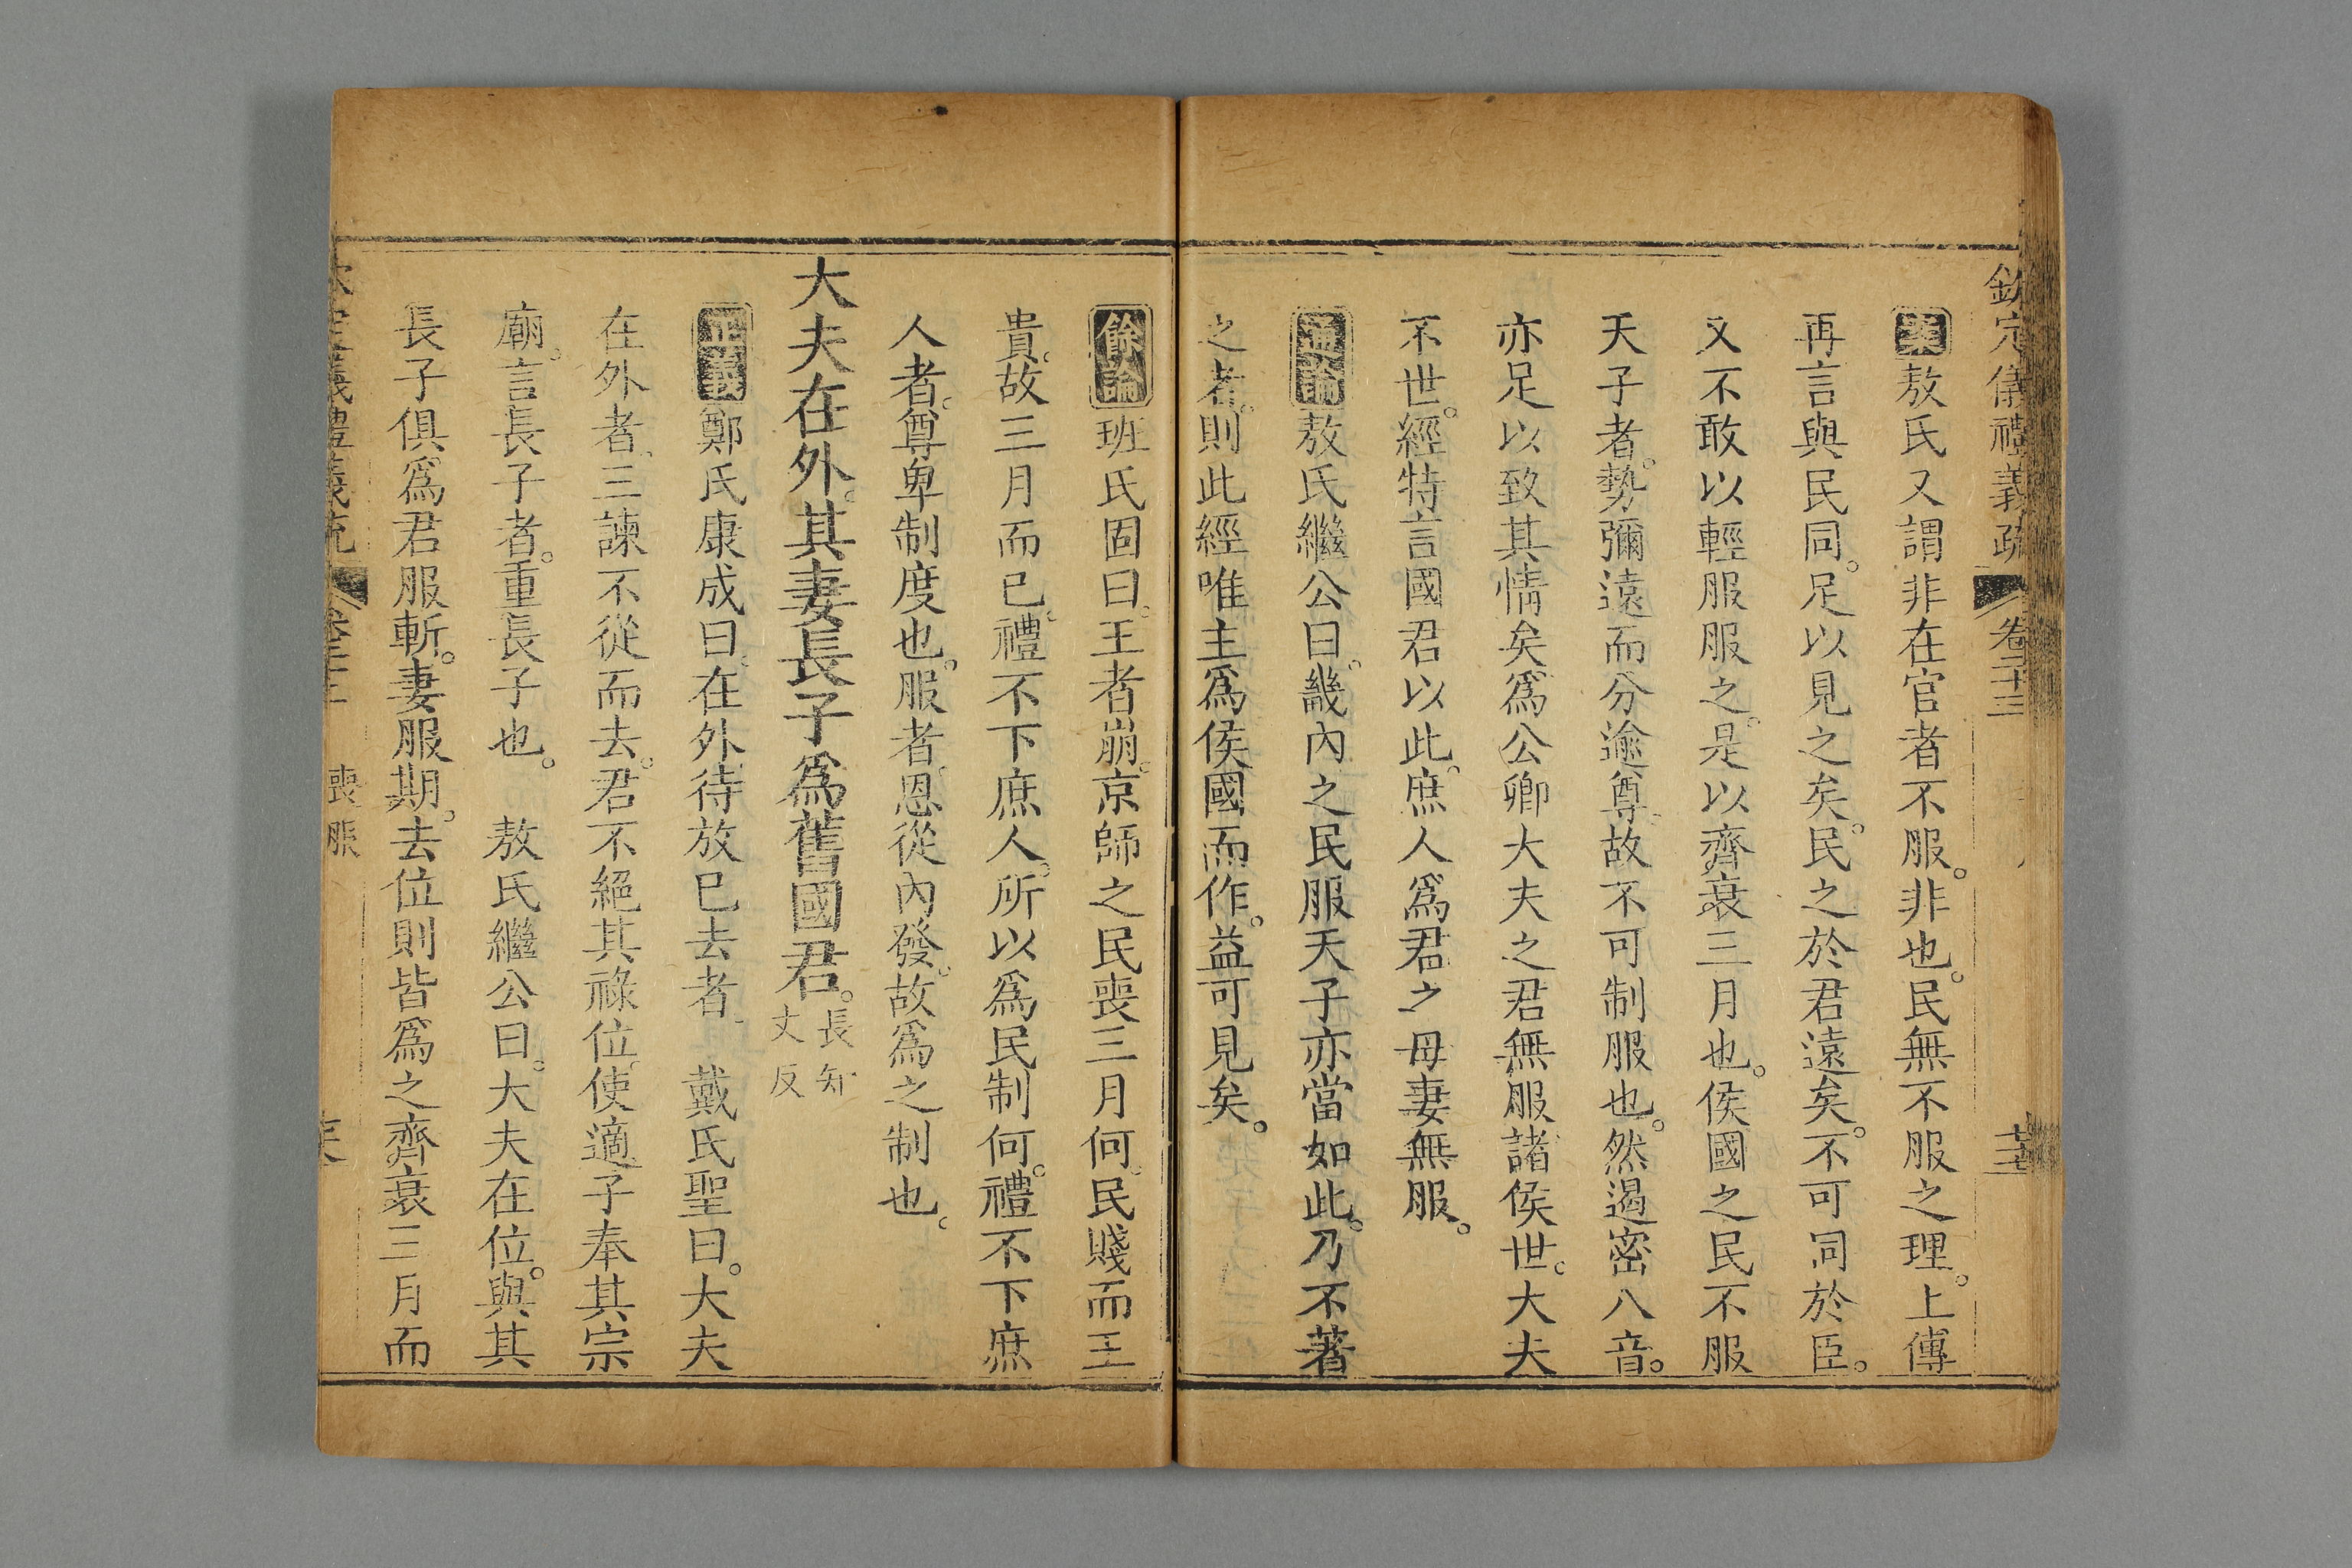 欽定儀禮義疏 卷二十三
案敖氏又謂非在官者不服。非也。民無不服之理。上傳
再言與民同。足以見之矣。民之於君遠矣。不可同於臣。
又不敢以輕服服之。是以齊衰三月也。侯國之民不服
天子者。勢彌遠而分逾尊。故不可制服也。然遏密八音。
亦足以致其情矣。爲公卿大夫之君無服。諸侯世。大夫
不世。經特言國君以此。庶人爲君之母妻無服。
通論敖氏繼公曰。畿內之民服天子亦當如此。乃不著
之者。則此經唯主爲侯國而作。益可見矣。
餘論班氏固曰。王者崩。京師之民喪三月何。民賤而王
貴。故三月而已。禮不下庶人。所以爲民制何。禮不下庶
人者。尊卑制度也。服者。恩從內發。故爲之制也。
大夫在外。其妻長子爲舊國君。長知丈反
正義鄭氏康成曰。在外待放已去者。 戴氏聖曰。大夫
在外者。三諫不從而去。君不絕其祿位。使適子奉其宗
廟。言長子者。重長子也。 敖氏繼公曰。大夫在位。與其
長子俱爲君服斬。妻服期。去位則皆爲之齊衰三月而
義禮義疏 喪服